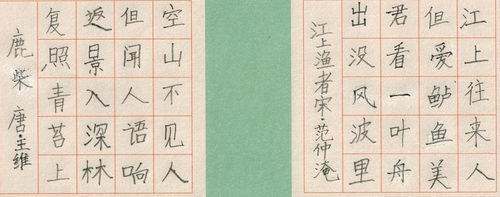 江上往来人
但爱鲈鱼美
君看一叶舟
出没风波里
江上渔者宋·范仲淹
空山不见人
但闻人语响
返景入深林
复照青苔上
鹿柴 唐·王维